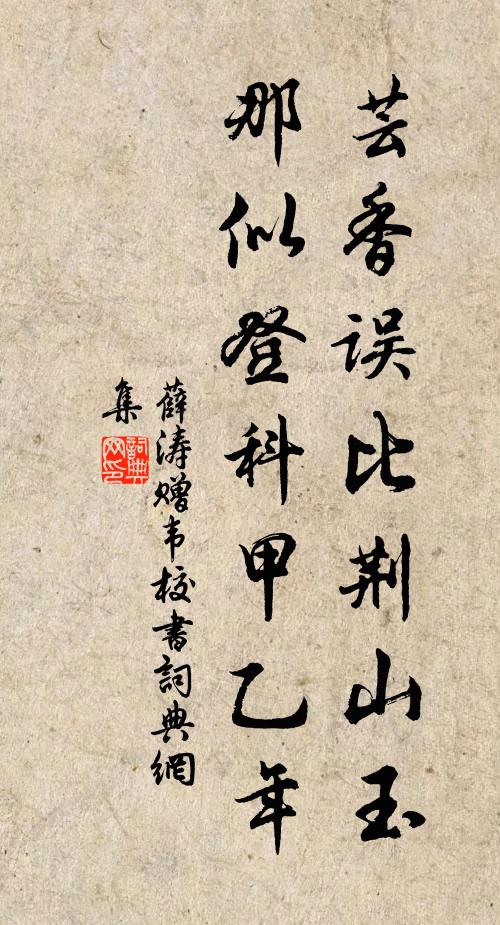 芸香误比荆山玉
那似登科甲乙年
薛涛赠韦校書詞典網
集
詞典網印